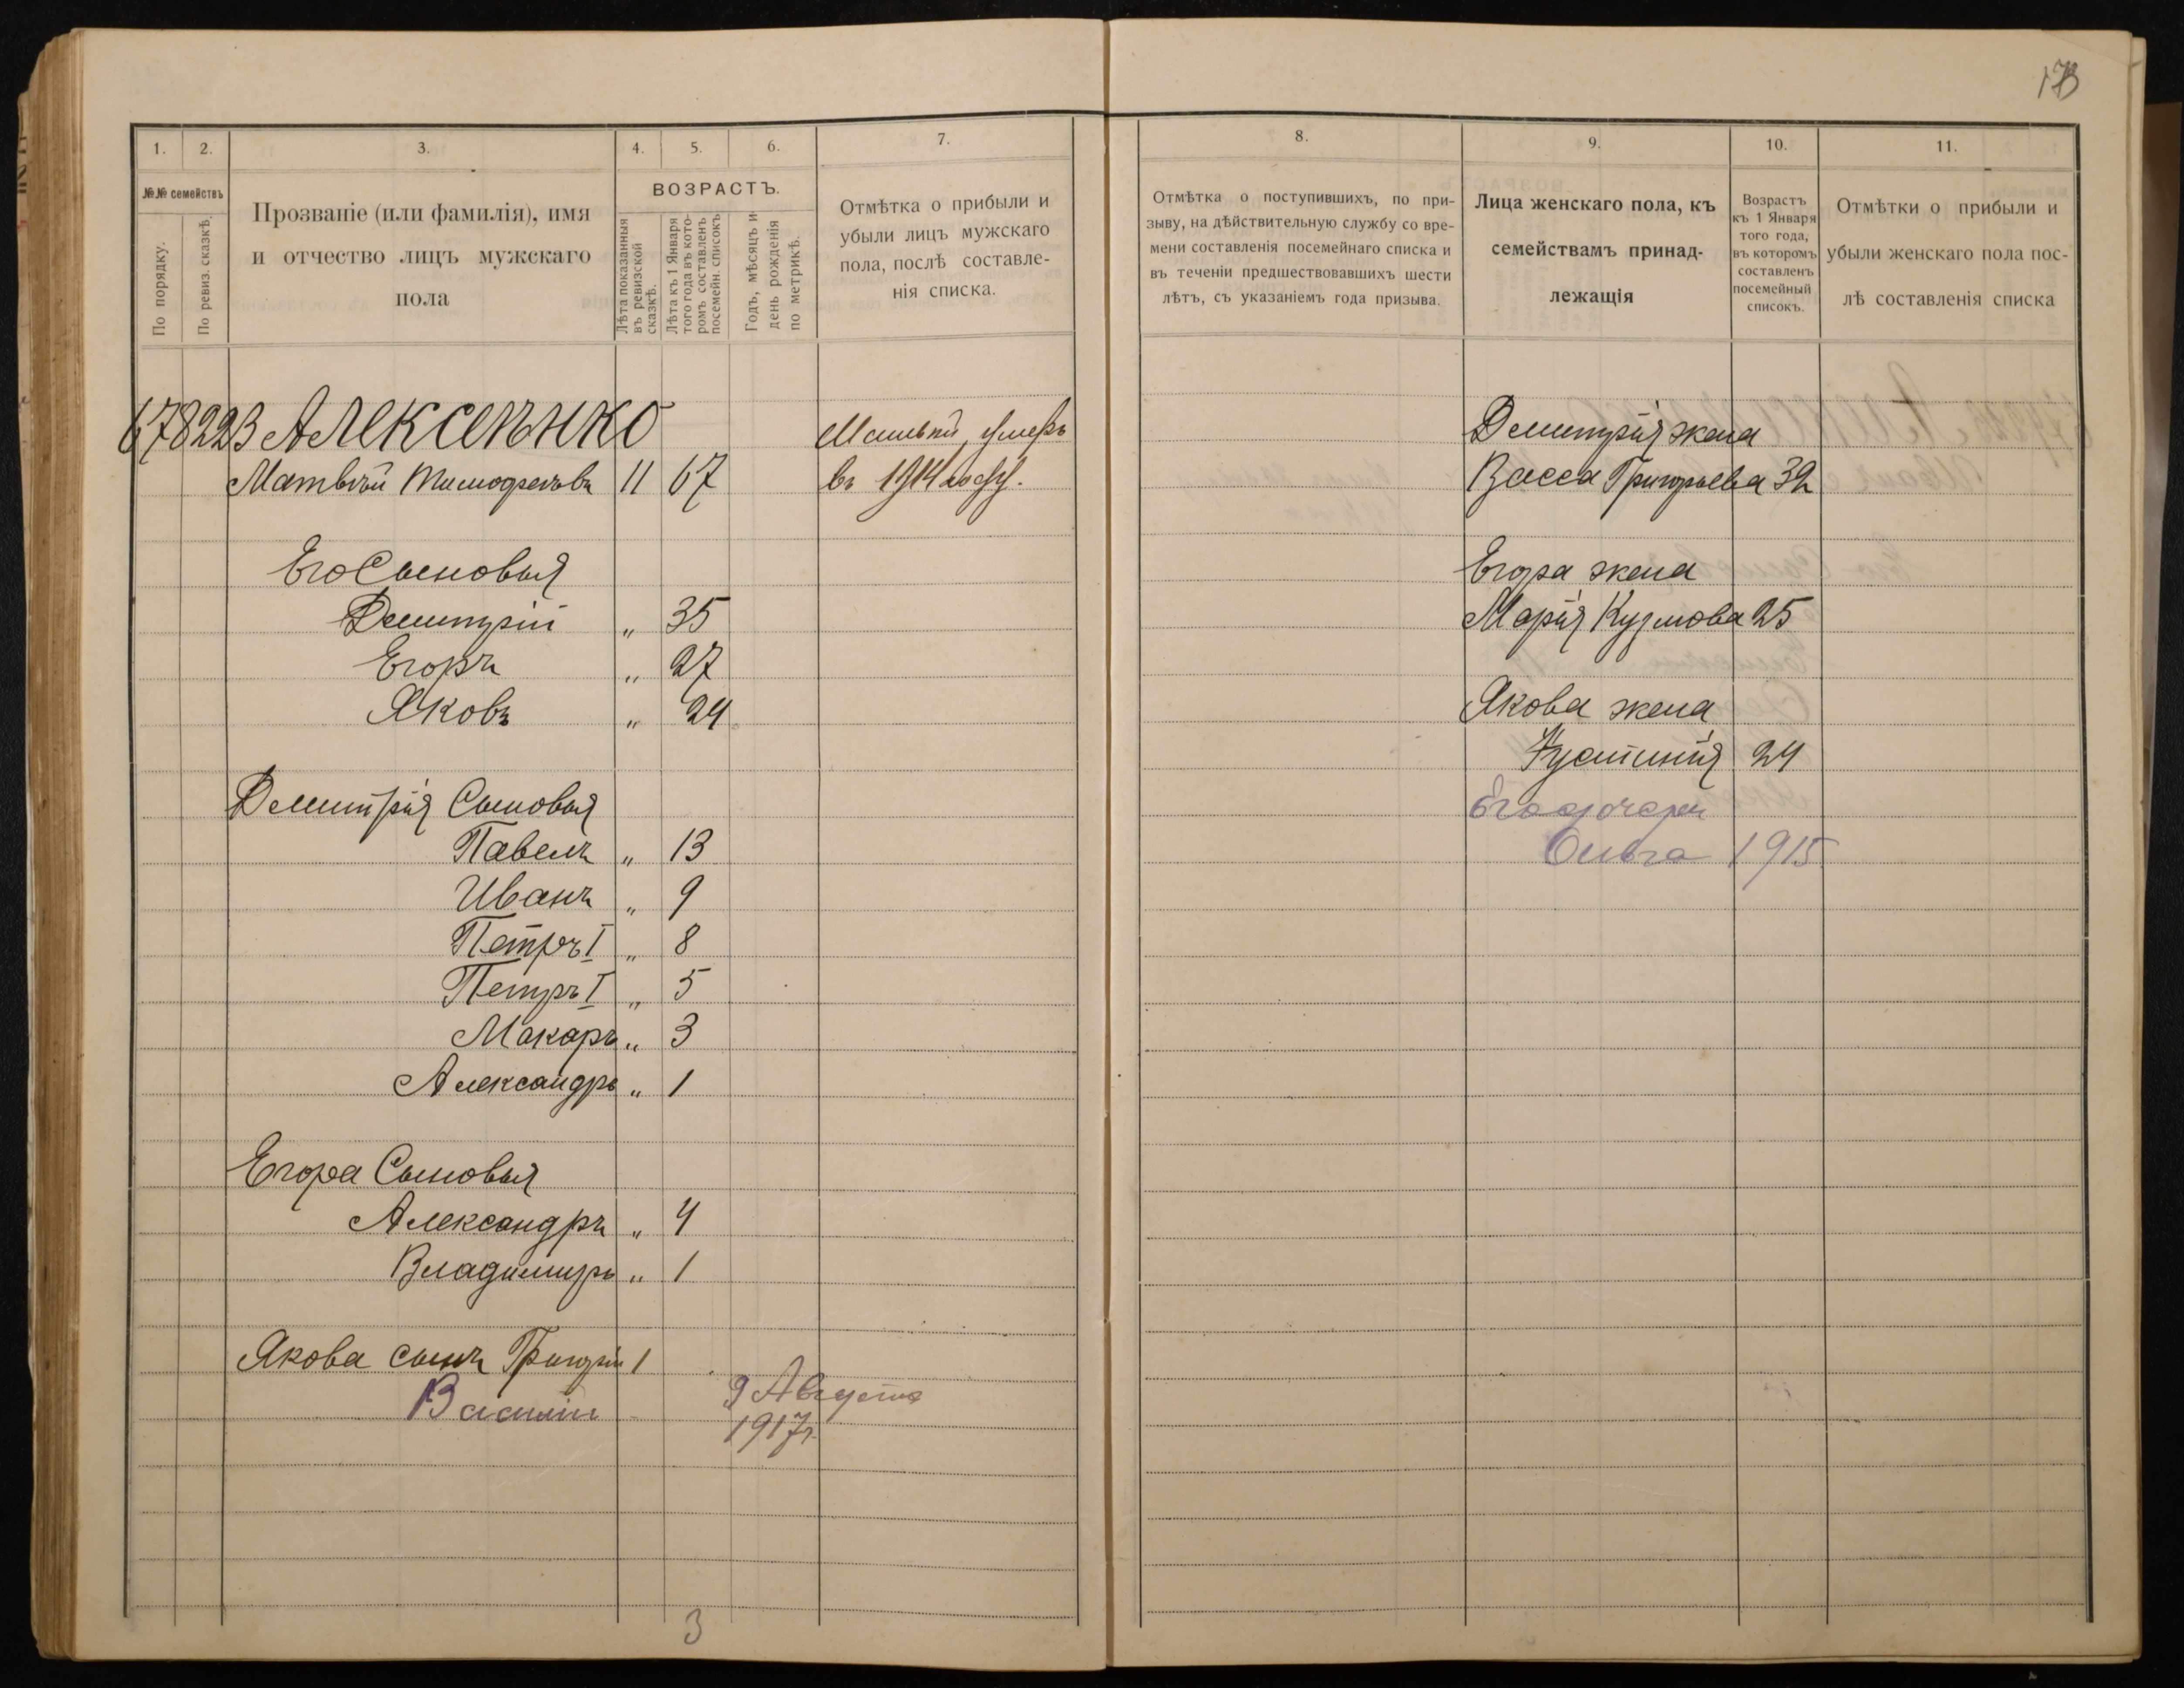 173
1.
2.
3.
4.
5.
6.
7.
№№ семействъ
По порядку.
По ревиз. сказкѣ.
Прозваніе (или фамилія), имя
и отчество лицъ мужскаго
пола
ВОЗРАСТЪ.
Лѣта показанныя
въ ревизской
сказкѣ.
Лѣта къ 1 Января
того года въ кото-
ромъ составленъ
посемейн. списокъ
Годъ, мѣсяцъ и
день рожденія
по метрикѣ.
Отмѣтка о прибыли и
убыли лицъ мужскаго
пола, послѣ составле-
нія списка.
678 223 Алексѣенко
Матвѣй Тимофеевъ 11 67
Матвѣй умеръ
въ 1914 году.
Его Сыновья
Димитрій " 35
Егоръ " 27
Яковъ " 24
Димитрія Сыновья
Павелъ " 13
Иванъ " 9
Петръ I " 8
Петръ I " 5
Макаръ " 3
Александръ " 1
Егора Сыновья
Александръ " 4
Владимиръ " 1
Якова сынъ Григорій 1
Василій 9 Августа
1917 г.
3
8.
9.
10.
11.
Отмѣтка о поступившихъ, по при-
зыву, на дѣйствительную службу со вре-
мени составленія посемейнаго списка и
въ теченіи предшествовавшихъ шести
лѣтъ, съ указаніемъ года призыва.
Лица женскаго пола, къ
семействамъ принад-
лежащія
Возрастъ
къ 1 Января
того года,
въ которомъ
составленъ
посемейный
списокъ.
Отмѣтки о прибыли и
убыли женскаго пола пос-
лѣ составленія списка
Димитрія жена
Васса Григорьева 32
Егора жена
Марія Кузмова 25
Якова жена
Іустинія 24
Его дочери
Ольга 1915